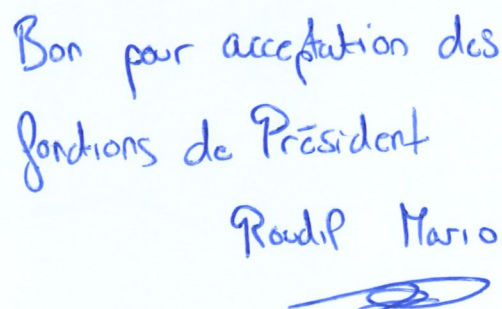 Bon pour acceptation des
fonctions de Président
Roudil Mario